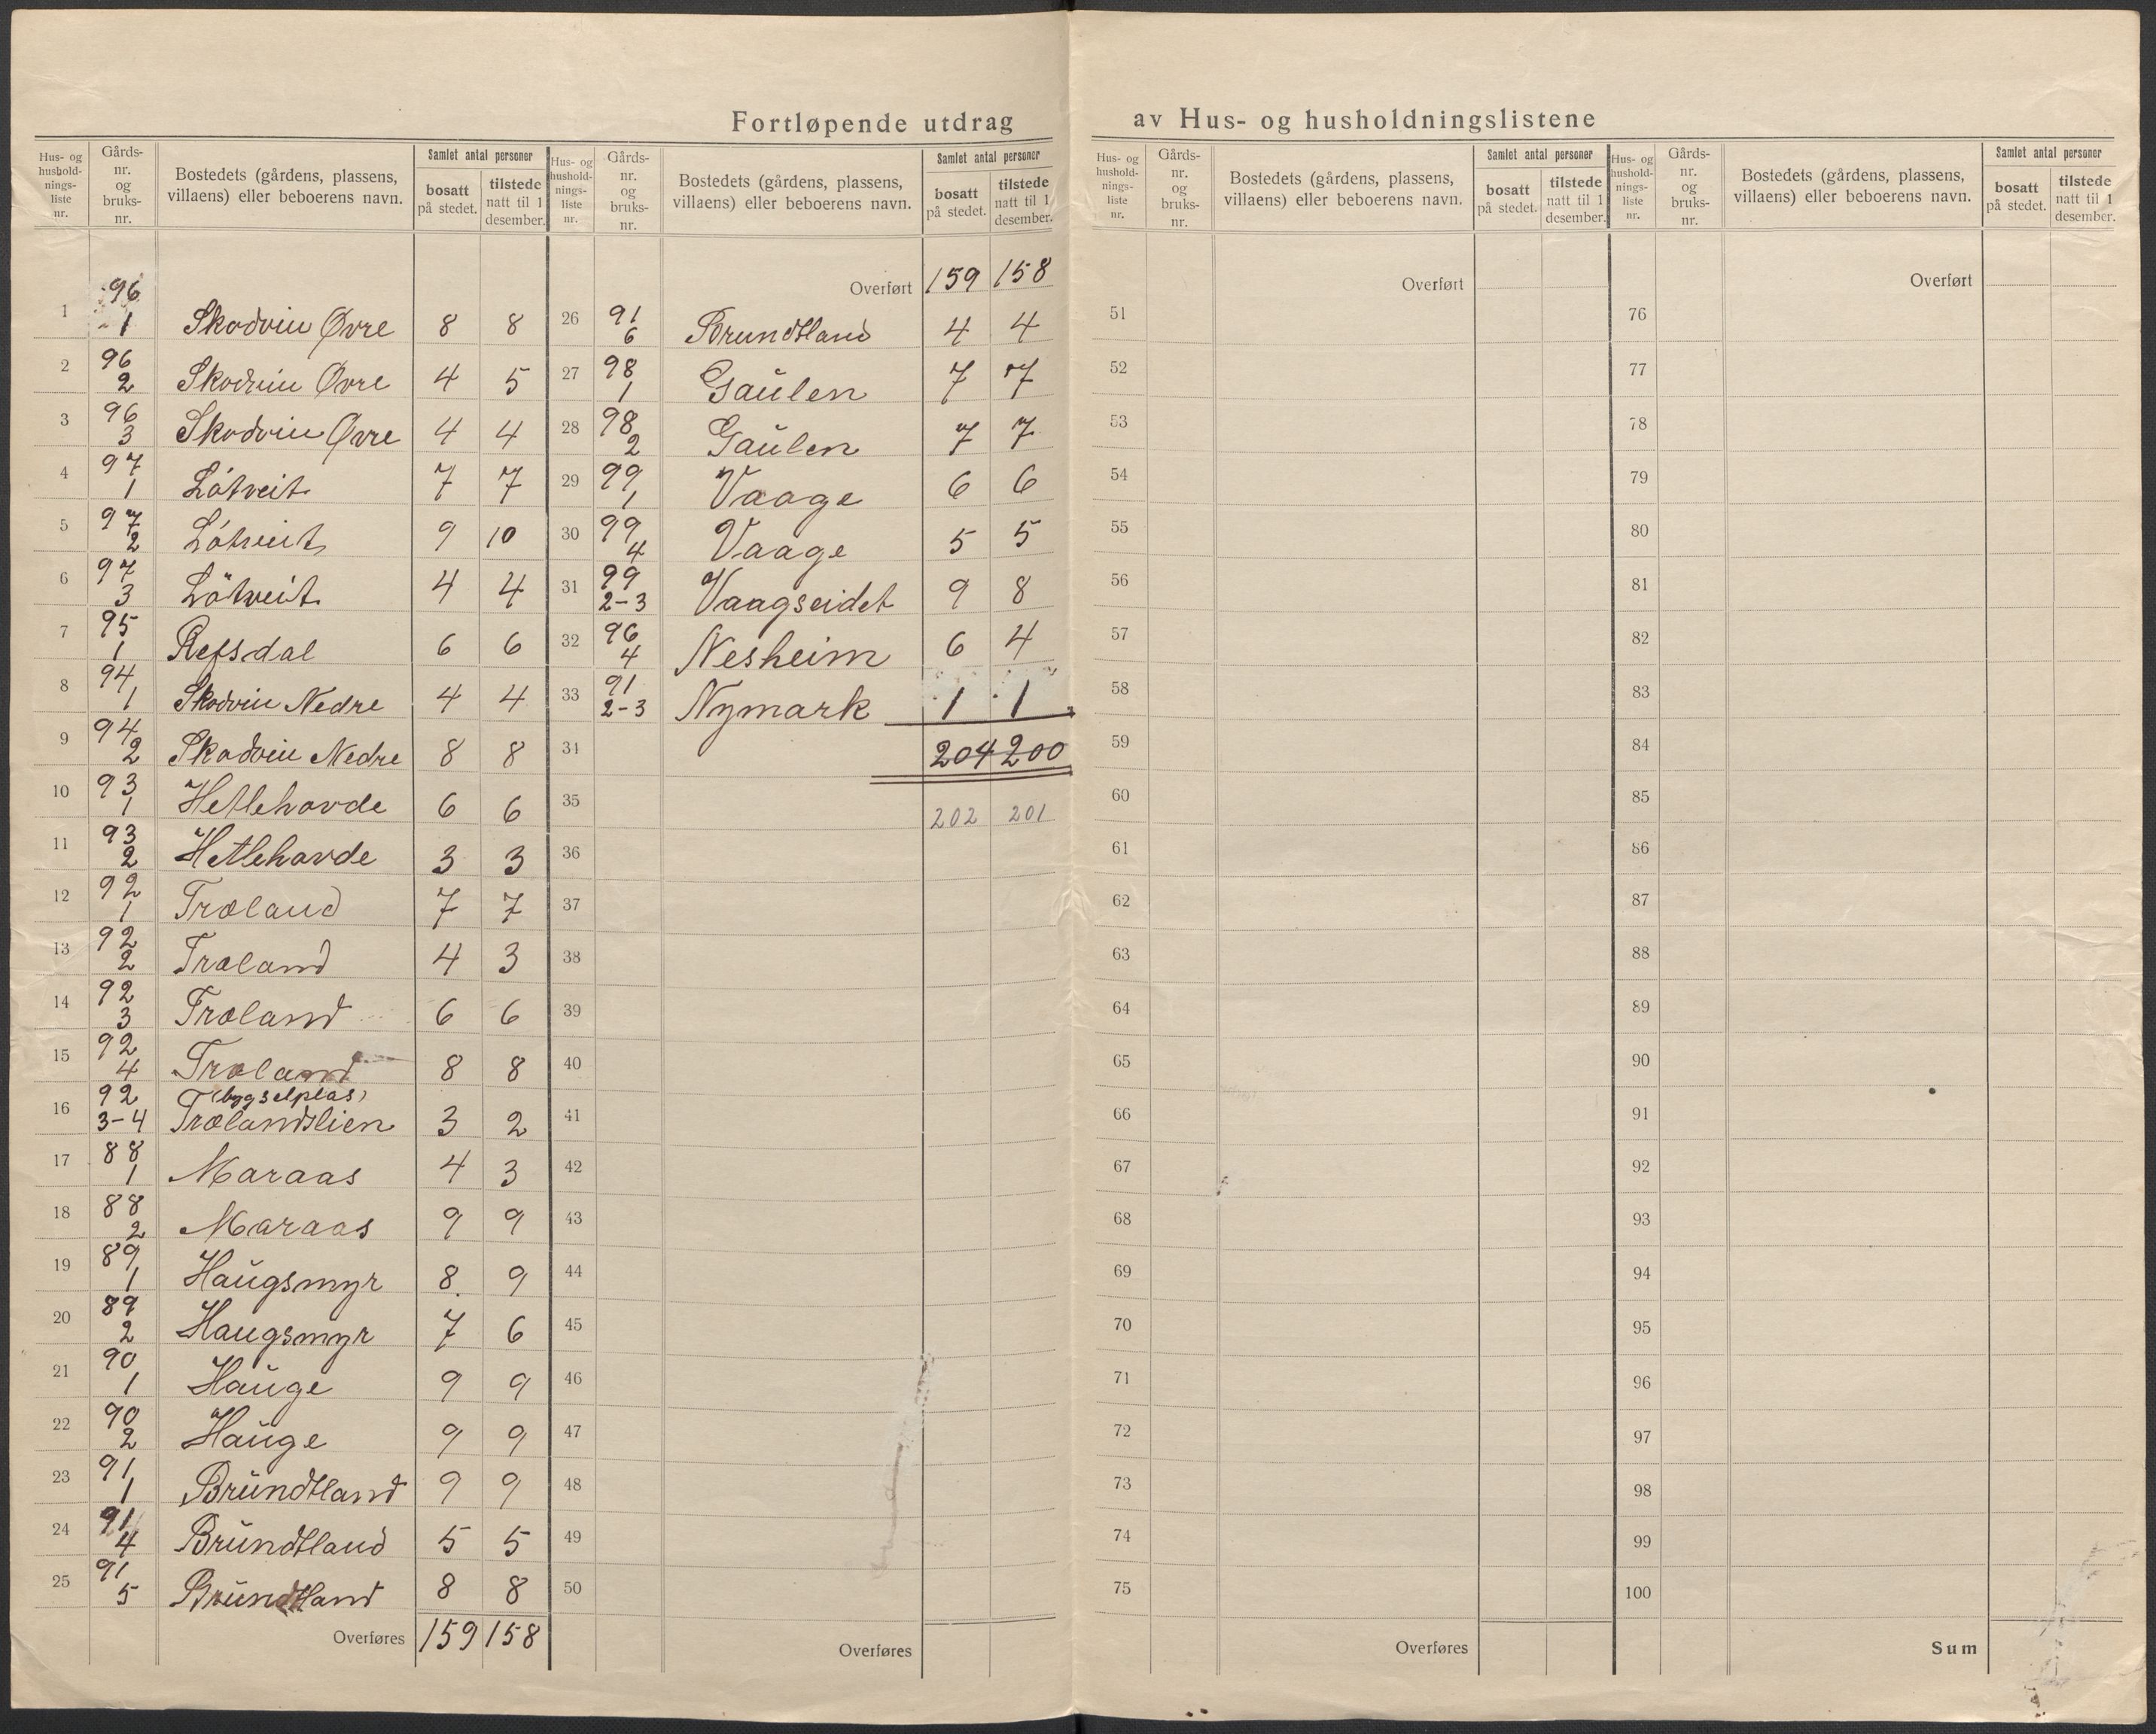 Fortløpende utdrag av Hus- og husholdningslistene
Hus- og husholdnings-liste nr. Gårds-nr. og bruks-nr. Bostedets (gårdens, plassens, villaens) eller beboerens navn. Samlet antal personer bosatt på stedet. tilstede natt til 1 desember.
1 96 1 Skodvin Øvre 8 8
2 96 2 Skodvin Øvre 4 5
3 96 3 Skodvin Øvre 4 4
4 97 1 Lótveit 7 7
5 97 2 Lótveit 9 10
6 97 3 Lötveit 4 4
7 95 1 Refsdal 6 6
8 94 1 Skodvin Nedre 4 4
9 94 2 Skodvin Nedre 8 8
10 93 1 Hetlehovde 6 6
11 93 2 Hetlehovde 3 3
12 92 1 Træland 7 7
13 92 2 Træland 4 3
14 92 3 Træland 6 6
15 92 4 Træland 8 8
16 92 3-4 (bygselplas) Trælandslien 3 2
17 88 1 Maraas 4 3
18 88 2 Maraas 9 9
19 89 1 Haugsmyr 8 9
20 89 2 Haugsmyr 7 6
21 90 1 Hauge 9 9
22 90 2 Hauge 9 9
23 91 1 Brundtland 9 9
24 91 4 Brundtland 5 5
25 91 5 Brundtland 8 8
Overføres 159 158
Hus- og husholdnings-liste nr. Gårds-nr. og bruks-nr. Bostedets (gårdens, plassens, villaens) eller beboerens navn. Samlet antal personer bosatt på stedet. tilstede natt til 1 desember.
Overført 159 158
26 91 6 Brundtland 4 4
27 98 1 Gaulen 7 7
28 98 2 Gaulen 7 7
29 99 1 Vaage 6 6
30 99 4 Vaage 5 5
31 99 2-3 Vaagseidet 9 8
32 96 4 Nesheim 6 4
33 91 2-3 Nymark 1 1
34 204 200
35 202 201
36
37
38
39
40
41
42
43
44
45
46
47
48
49
50
Overføres
Hus- og husholdnings-liste nr. Gårds-nr. og bruks-nr. Bostedets (gårdens, plassens, villaens) eller beboerens navn. Samlet antal personer bosatt på stedet. tilstede natt til 1 desember.
Overført
51
52
53
54
55
56
57
58
59
60
61
62
63
64
65
66
67
68
69
70
71
72
73
74
75
Overføres
Hus- og husholdnings-liste nr. Gårds-nr. og bruks-nr. Bostedets (gårdens, plassens, villaens) eller beboerens navn. Samlet antal personer bosatt på stedet. tilstede natt til 1 desember.
Overført
76
77
78
79
80
81
82
83
84
85
86
87
88
89
90
91
92
93
94
95
96
97
98
99
100
Sum